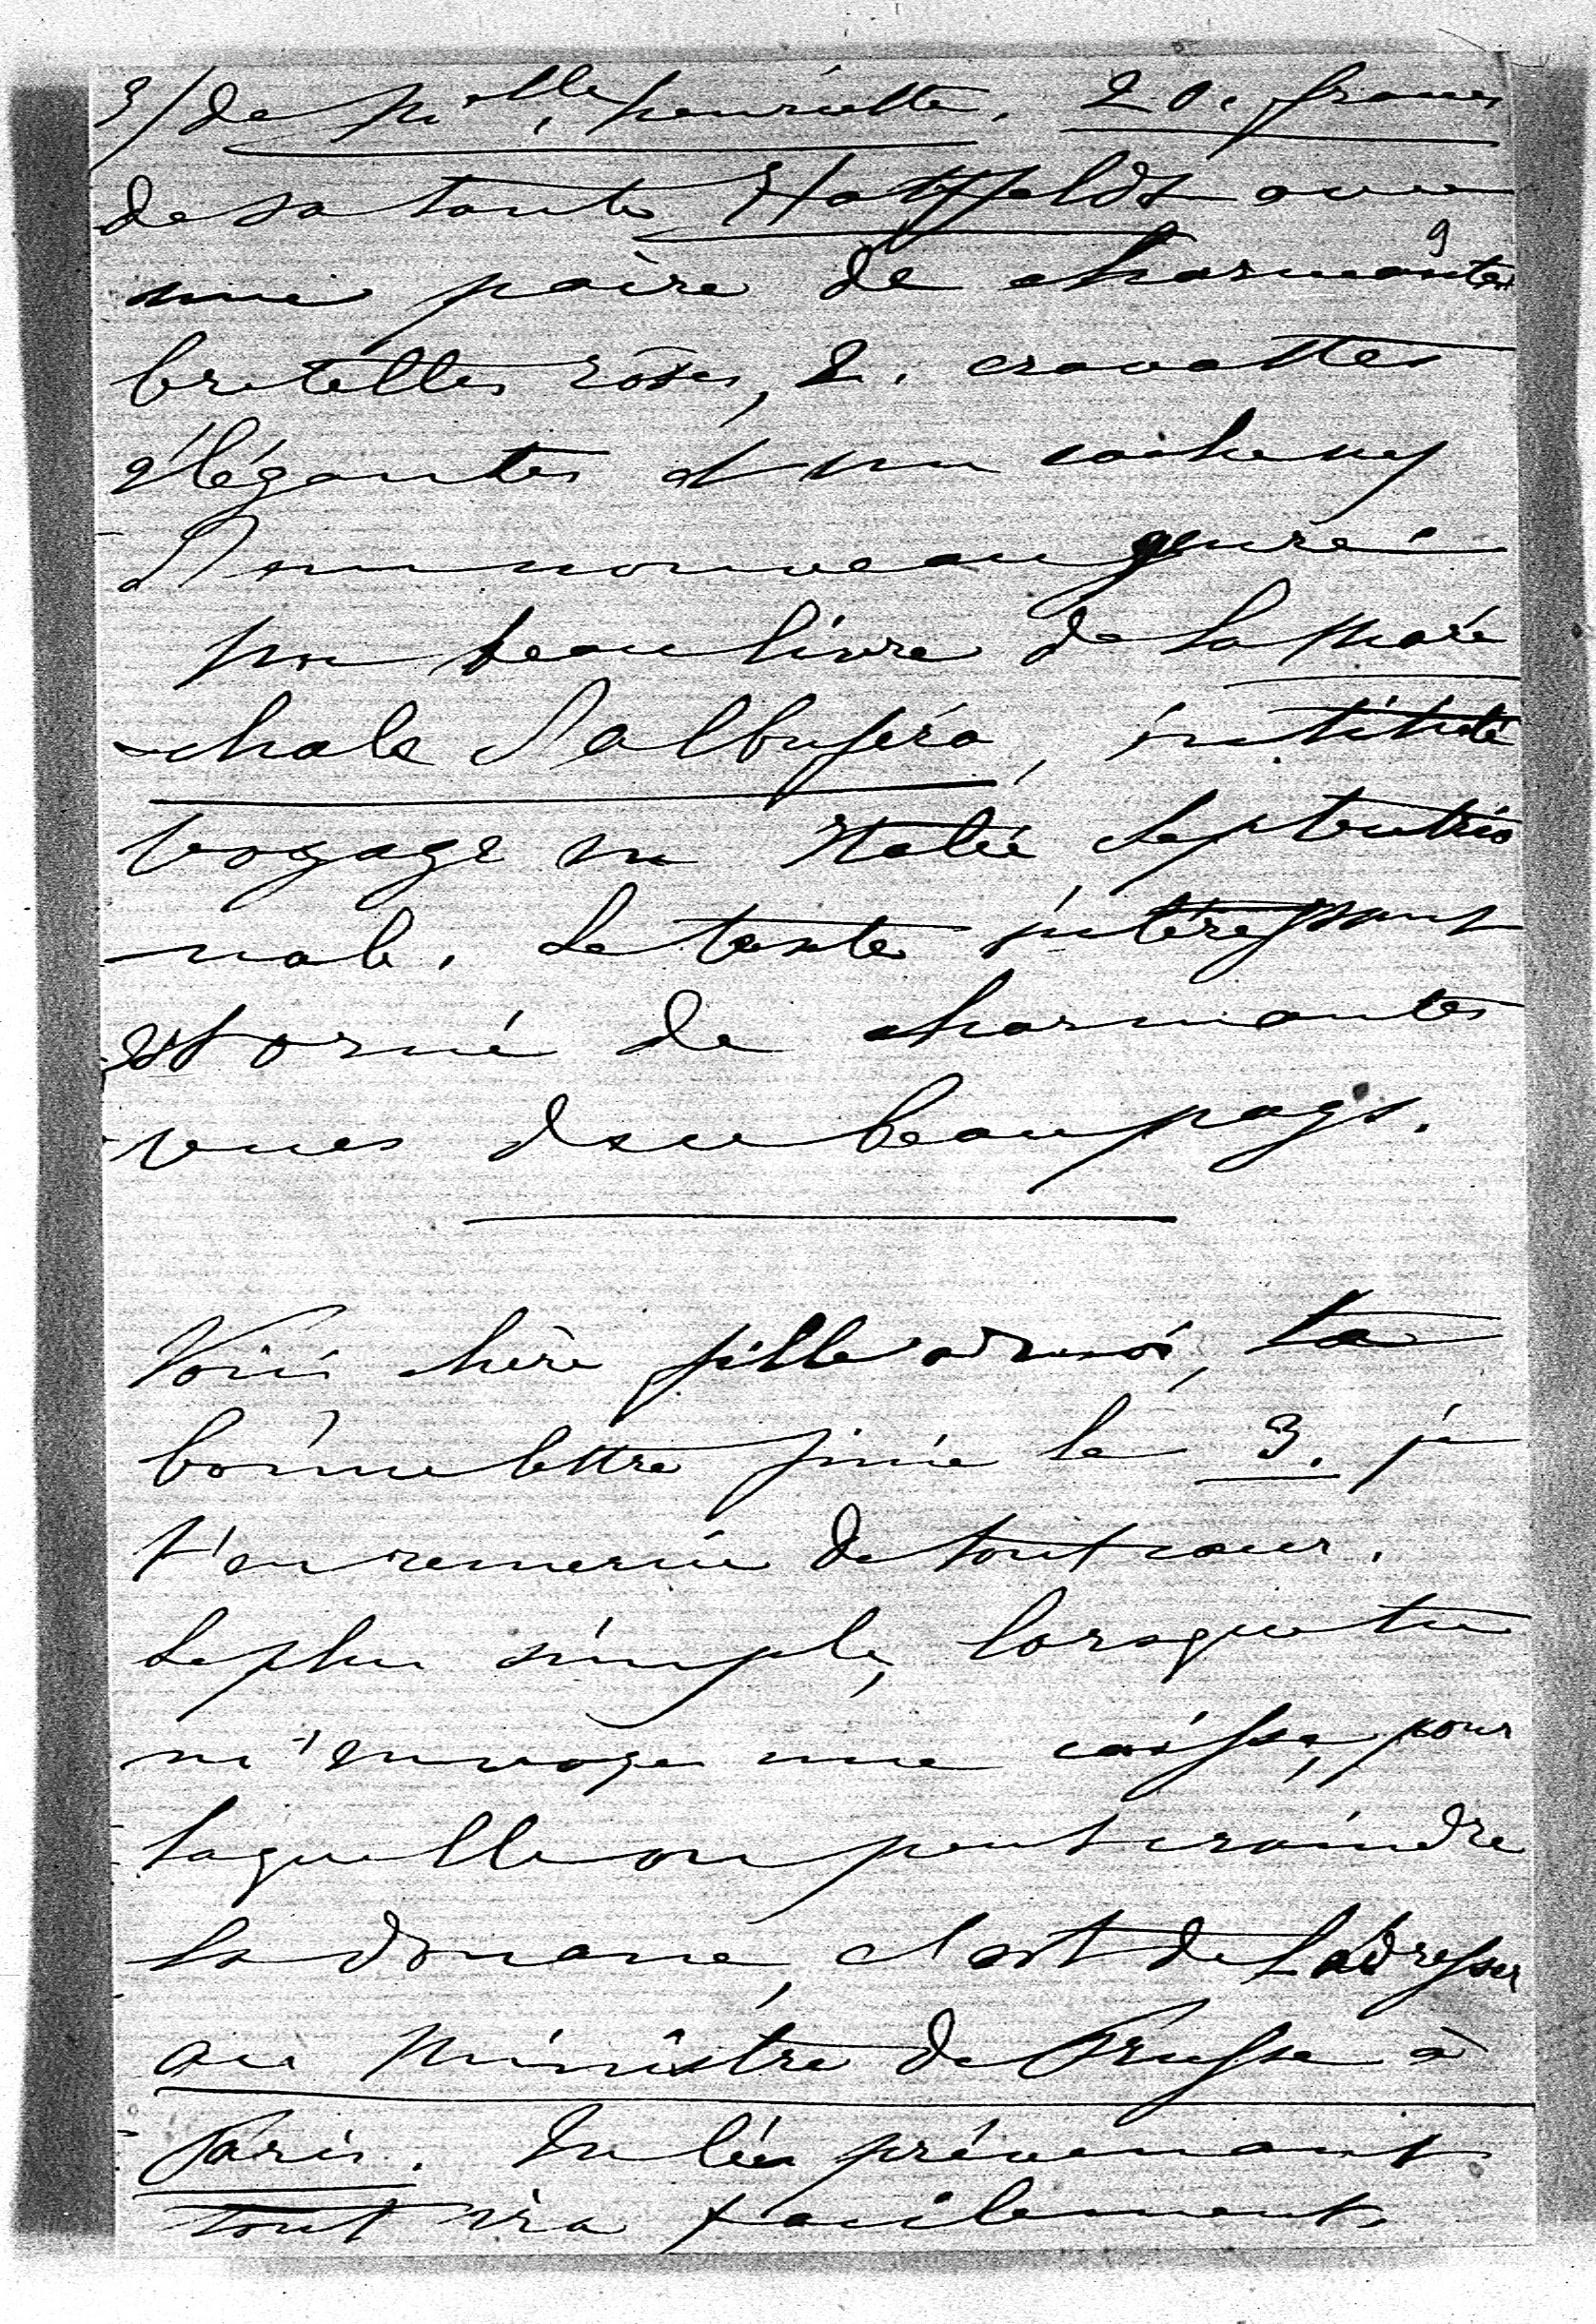 3/ de Melle henriette. 20. francs
de sa tante Hatzfeldt avec
9
une paire de charmantes
bretelles roses, 2. cravattes
élégantes et un cacheney
d'un nouveau genre.
un beau livre de la Maré
chale d'albuféra, intitulé
voyage en Italie septentrio
nale. Le texte intéressant
est orné de charmantes
vues de ce beau pays.
Voici chère fille adorée, ta
bonne lettre finie le 3. je
t'en remercie de tout cœur.
Le plus simple, lorsque tu
m'envoyes une caisse, pour
laquelle on peut craindre
la douane, c'est de l'adresser
au Ministre de Prusse à
Paris. En le prévenant
tout ira facilement